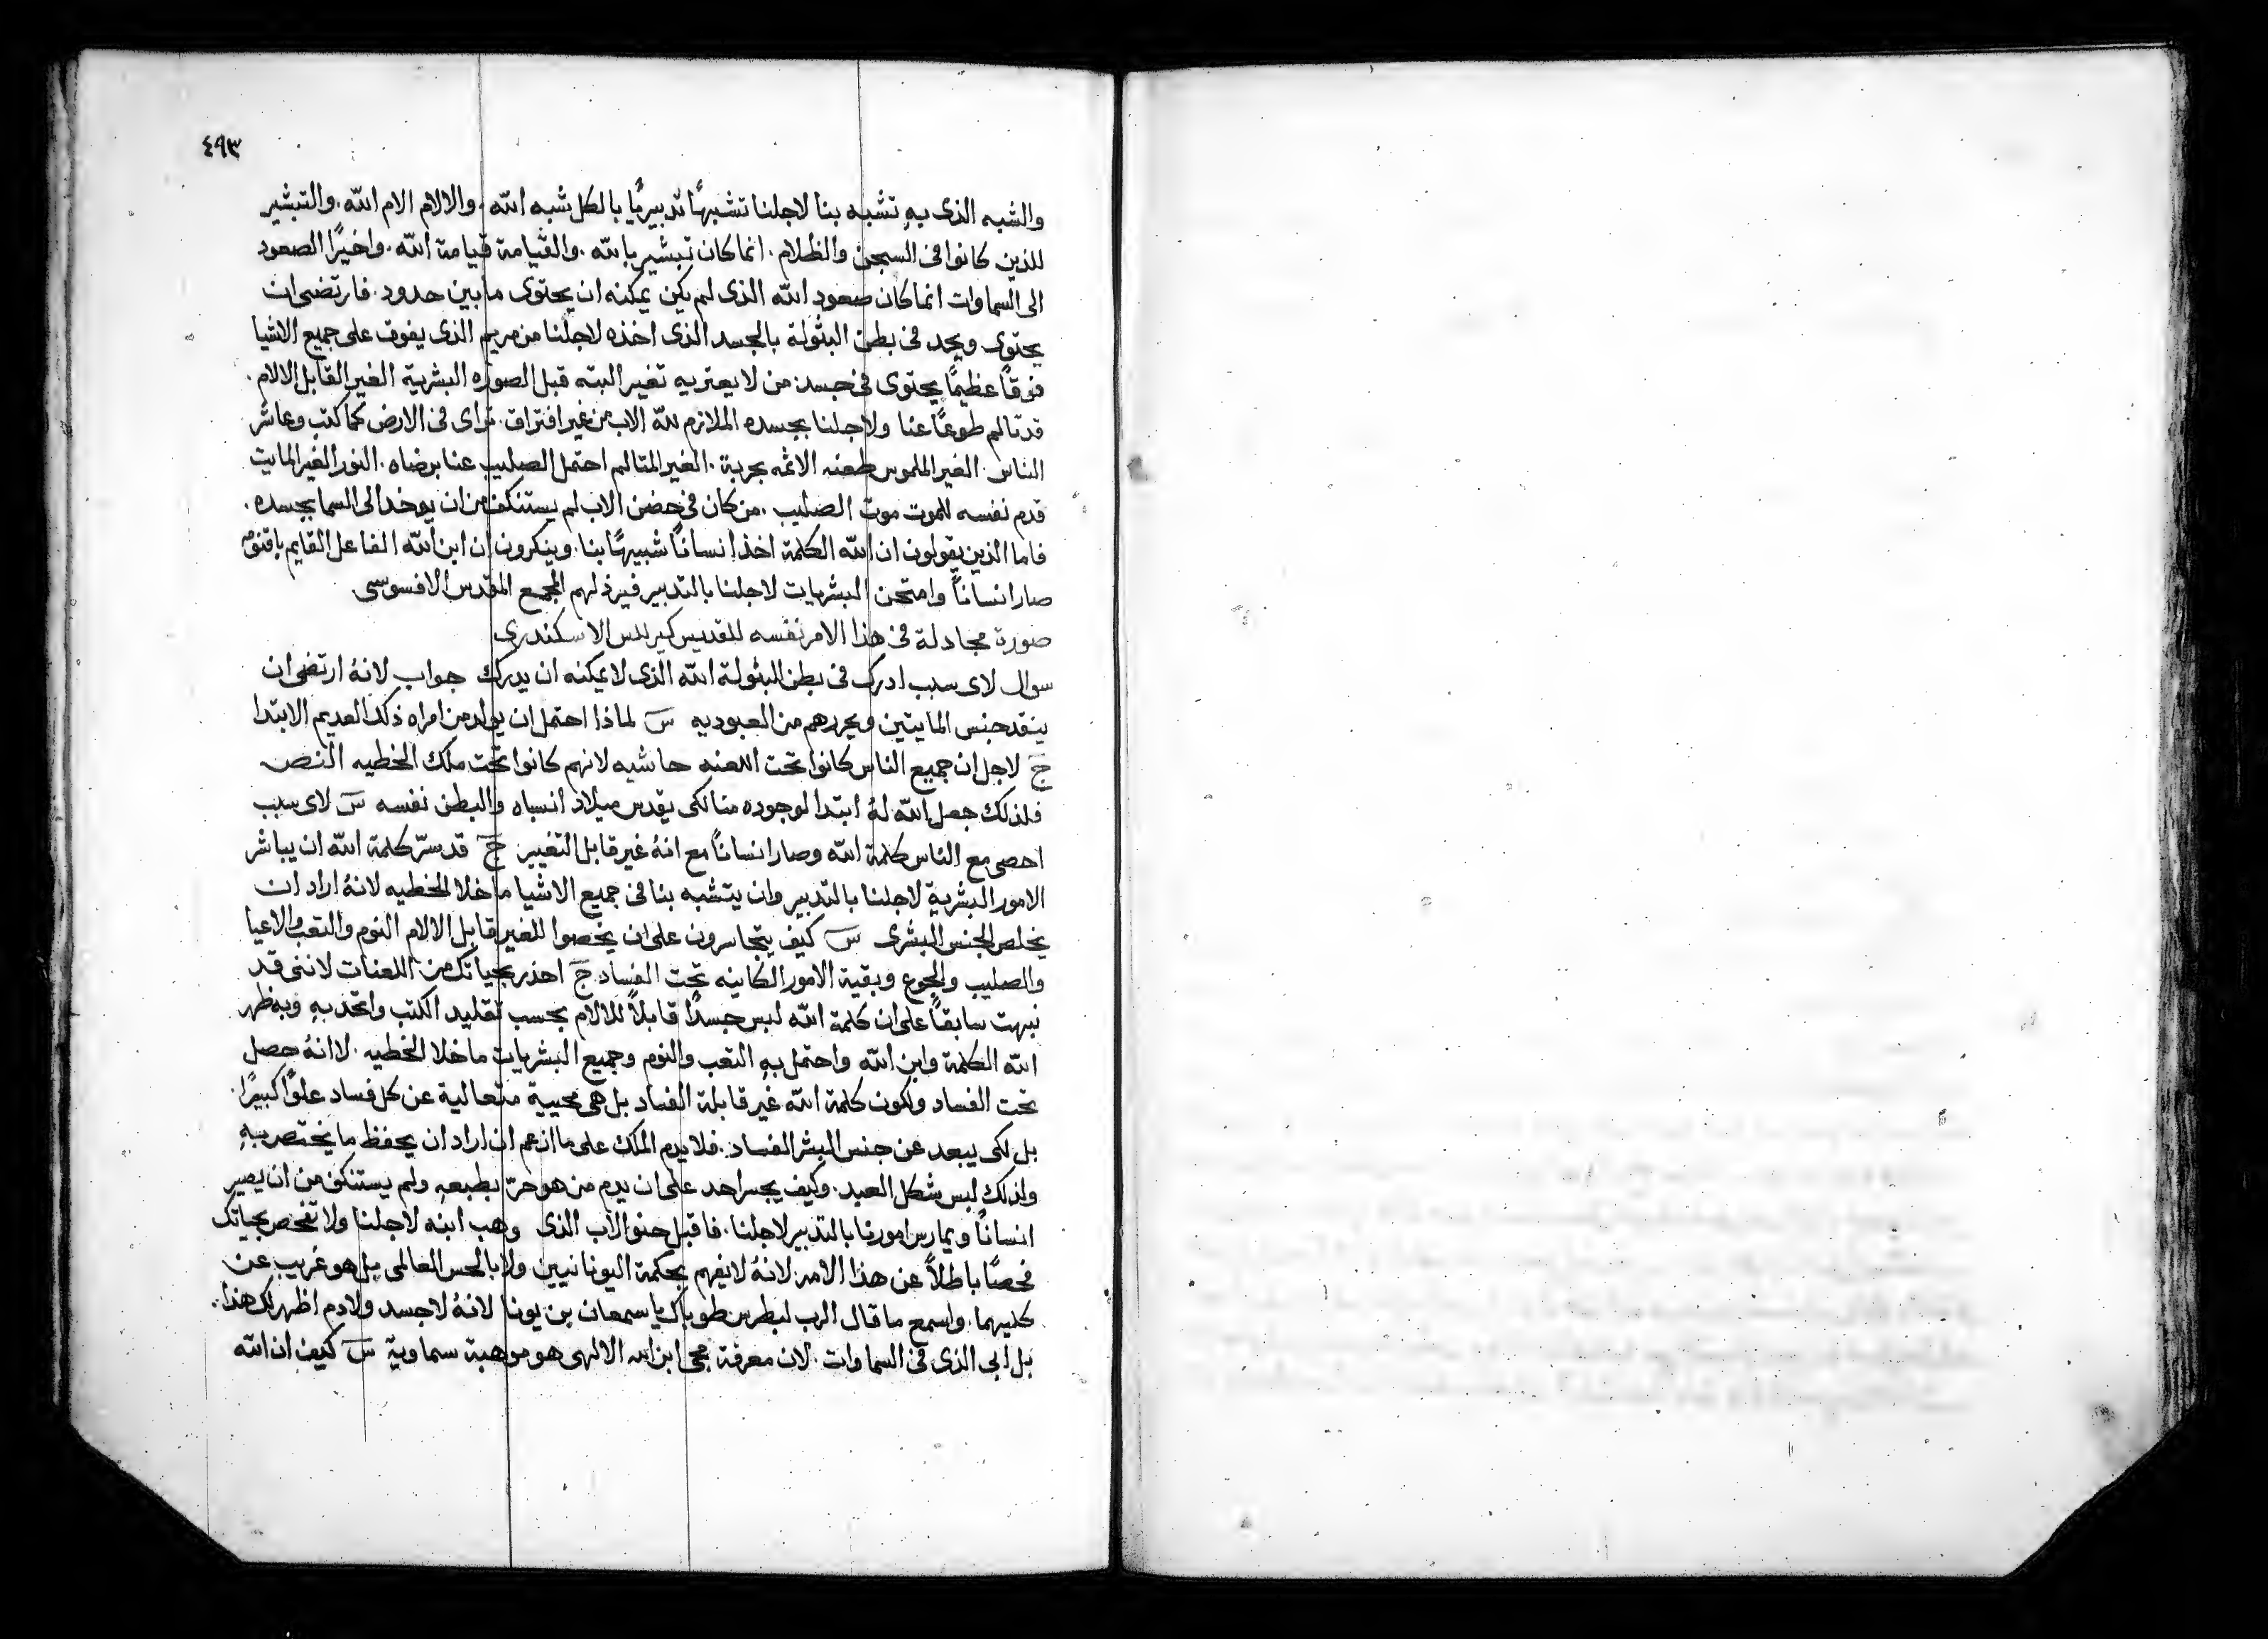 ٤٩٣
والشبه الذى بهِ تشبه بنا لاجلنا تشبهًا تدبيريًا بالكل شبه الله. والالام الام الله. والتبشير
للذين كانوا فى السجن والظلام. انما كان تبشير بالله. والقيامة قيامة الله. واخيرًا الصعود
الى السماوات انما كان صعود الله الذى لم يكن يمكنه ان يحتوى ما بين حدود. فارتضى ان
يحتوى ويحد فى بطن البثولة بالجسد الذى اخذه لاجلنا من مريم الذى يفوق على جميع الاشيا
فوقًا عظيمًا يحتوى فى جسد. من لا يعتريه تغير البته قبل الصوره البشرية الغير القابل الالام.
قد تالم طوعًا عنا ولاجلنا بجسده الملازم لله الاب من غير افتراق. تراى فى الارض كما كتب وعاشر
الناس. الغير الملموس طعنه الاثمه بحربة. الغير المتالم احتمل الصليب عنا برضاه. النور الغير المايت
قدم نفسه للموت موت الصليب. من كان فى حضن الاب لم يستنكف من ان يوخد الى السما بجسده.
فاما الذين يقولون ان الله الكلمة اخذ انسانًا شبيهًا بنا. وينكرون ان ابن الله الفاعل القايم باقنومه
صار انسانًا وامتحن البشريات لاجلنا بالتدبير فيرذلهم المجمع المقدس الافسوسى
صورة مجادلة فى هذا الامر نفسه للقديس كيرللس الاسكندرى
سوال لاى سبب ادرك فى بطن البثولة الله الذى لا يمكنه ان يدرك جواب لانهُ ارتضى ان
ينقد جنس المايتين ويحررهم من العبوديه سَ لماذا احتمل ان يولد من امراه ذلك العديم الابتدا
جَ لاجل ان جميع الناس كانوا تحت اللعنه حاشيه لانهم كانوا تحت ملك الخطيه النص
فلذلك جعل الله لهُ ابتدا لوجوده منا لكى يقدس ميلاد انساه والبطن نفسه سَ لاى سبب
احصى مع الناس كلمة الله وصار انسانًا مع انهُ غير قابل التغيير جَ قد سرّ كلمة الله ان يباشر
الامور البشرية لاجلنا بالتدبير وان يتشبه بنا فى جميع الاشيا ما خلا الخطيه لانهُ اراد ان
يخلص الجنس البشرى سَ كيف يتجاسرون على ان يخصوا للغير قابل الالام النوم والتعب والاعيا
والصليب والجوع وبقية الامور الكاينه تحت الفساد جَ احذر بحياتك من اللعنات لاننى قد
نبهت سابقًا على ان كلمة الله لبس جسدًا قابلاً للالام بحسب تقليد الكتب واتحد بهِ وبه ظهر
الله الكلمة وابن الله واحتمل بهِ التعب والنوم وجميع البشريات ما خلا الخطيه. لا انهُ حصل
تحت الفساد ولكون كلمة الله غير قابلة الفساد بل هى محيية متعالية عن كل فساد علوًا كبيرًا.
بل لكى يبعد عن جنس البشر الفساد. فلا يدم الملك على ما ازعم ان اراد ان يحفظ ما يختص بهِ
ولذلك لبس شكل العبد. وكيف يجسر احد على ان يدم من هو حرّ بطبعهِ ولم يستنكف من ان يصير
انسانًا ويمارس امورنا بالتدبير لاجلنا. فاقبل حنو الاب الذى وهب ابنه لاجلنا ولا تفحص بحياتك
فحصًا باطلاً عن هذا الامر. لانهُ لا يفهم بحكمة اليونانيين ولا بالحس العالمى بل هو غريب عن
كليهما. واسمع ما قال الرب لبطرس طوباك يا سمعان بن يونا لانهُ لا جسد ولا دم اظهر لك هذا.
بل ابى الذى فى السماوات. لان معرفة مجى ابن الله الالهى هو موهبة سماوية سَ كيف ان الله